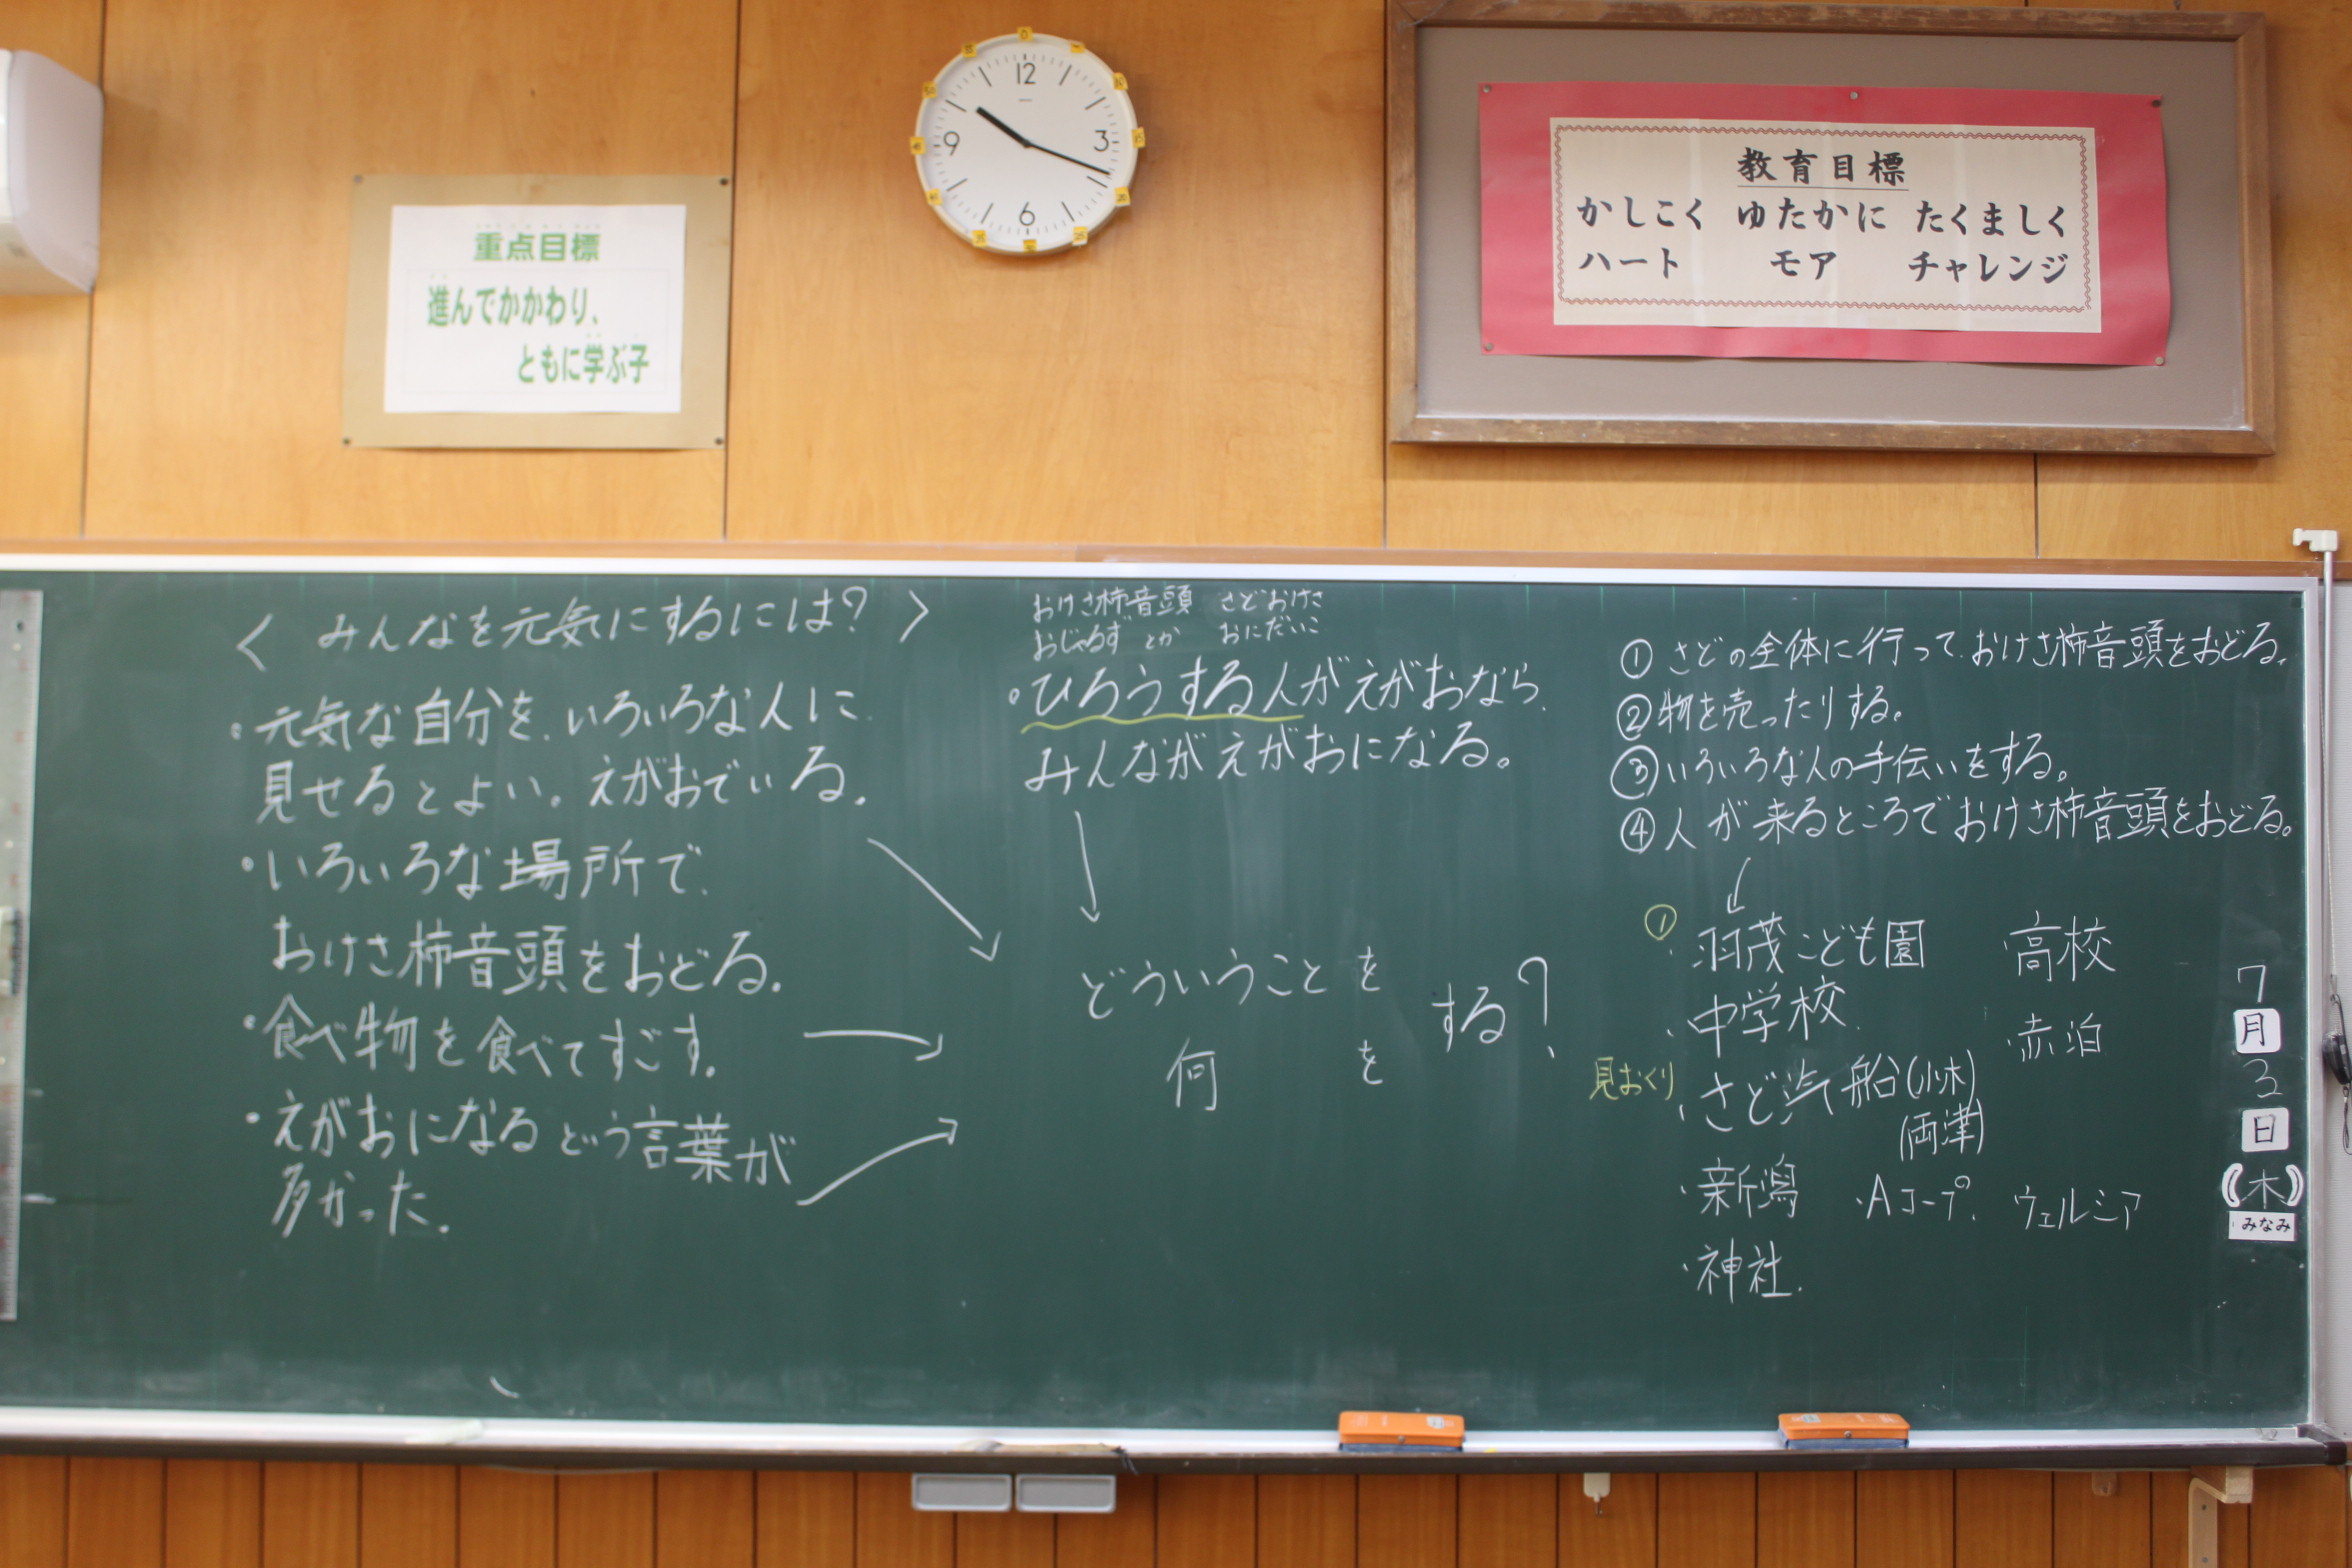 重点目標
進んでかかわり、
ともに学ぶ子
12
3
6
9
教育目標
かしこく ゆたかに たくましく
ハート モア チャレンジ
< みんなを元気にするには? >
・元気な自分を、いろいろな人に
見せるとよい。えがおでいる。
・いろいろな場所で、
おけさ柿音頭をおどる。
・食べ物を食べてすごす。
・えがおになるどう言葉が
多かった。
おけさ柿音頭 さどおけさ
おじゃるず とか おにだいこ
・ひろうする人がえがおなら、
みんながえがおになる。
どういうことを
何を
する?
① さどの全体に行って、おけさ柿音頭をおどる。
② 物を売ったりする。
③ いろいろな人の手伝いをする。
④ 人が来るところでおけさ柿音頭をおどる。
①
・羽茂こども園 ・高校
・中学校 ・赤泊
見おくり
・さど汽船(小木)
(両津)
・新潟 ・Aコープ、ウェルシア
・神社
7
月
3
日
(木)
みなみ